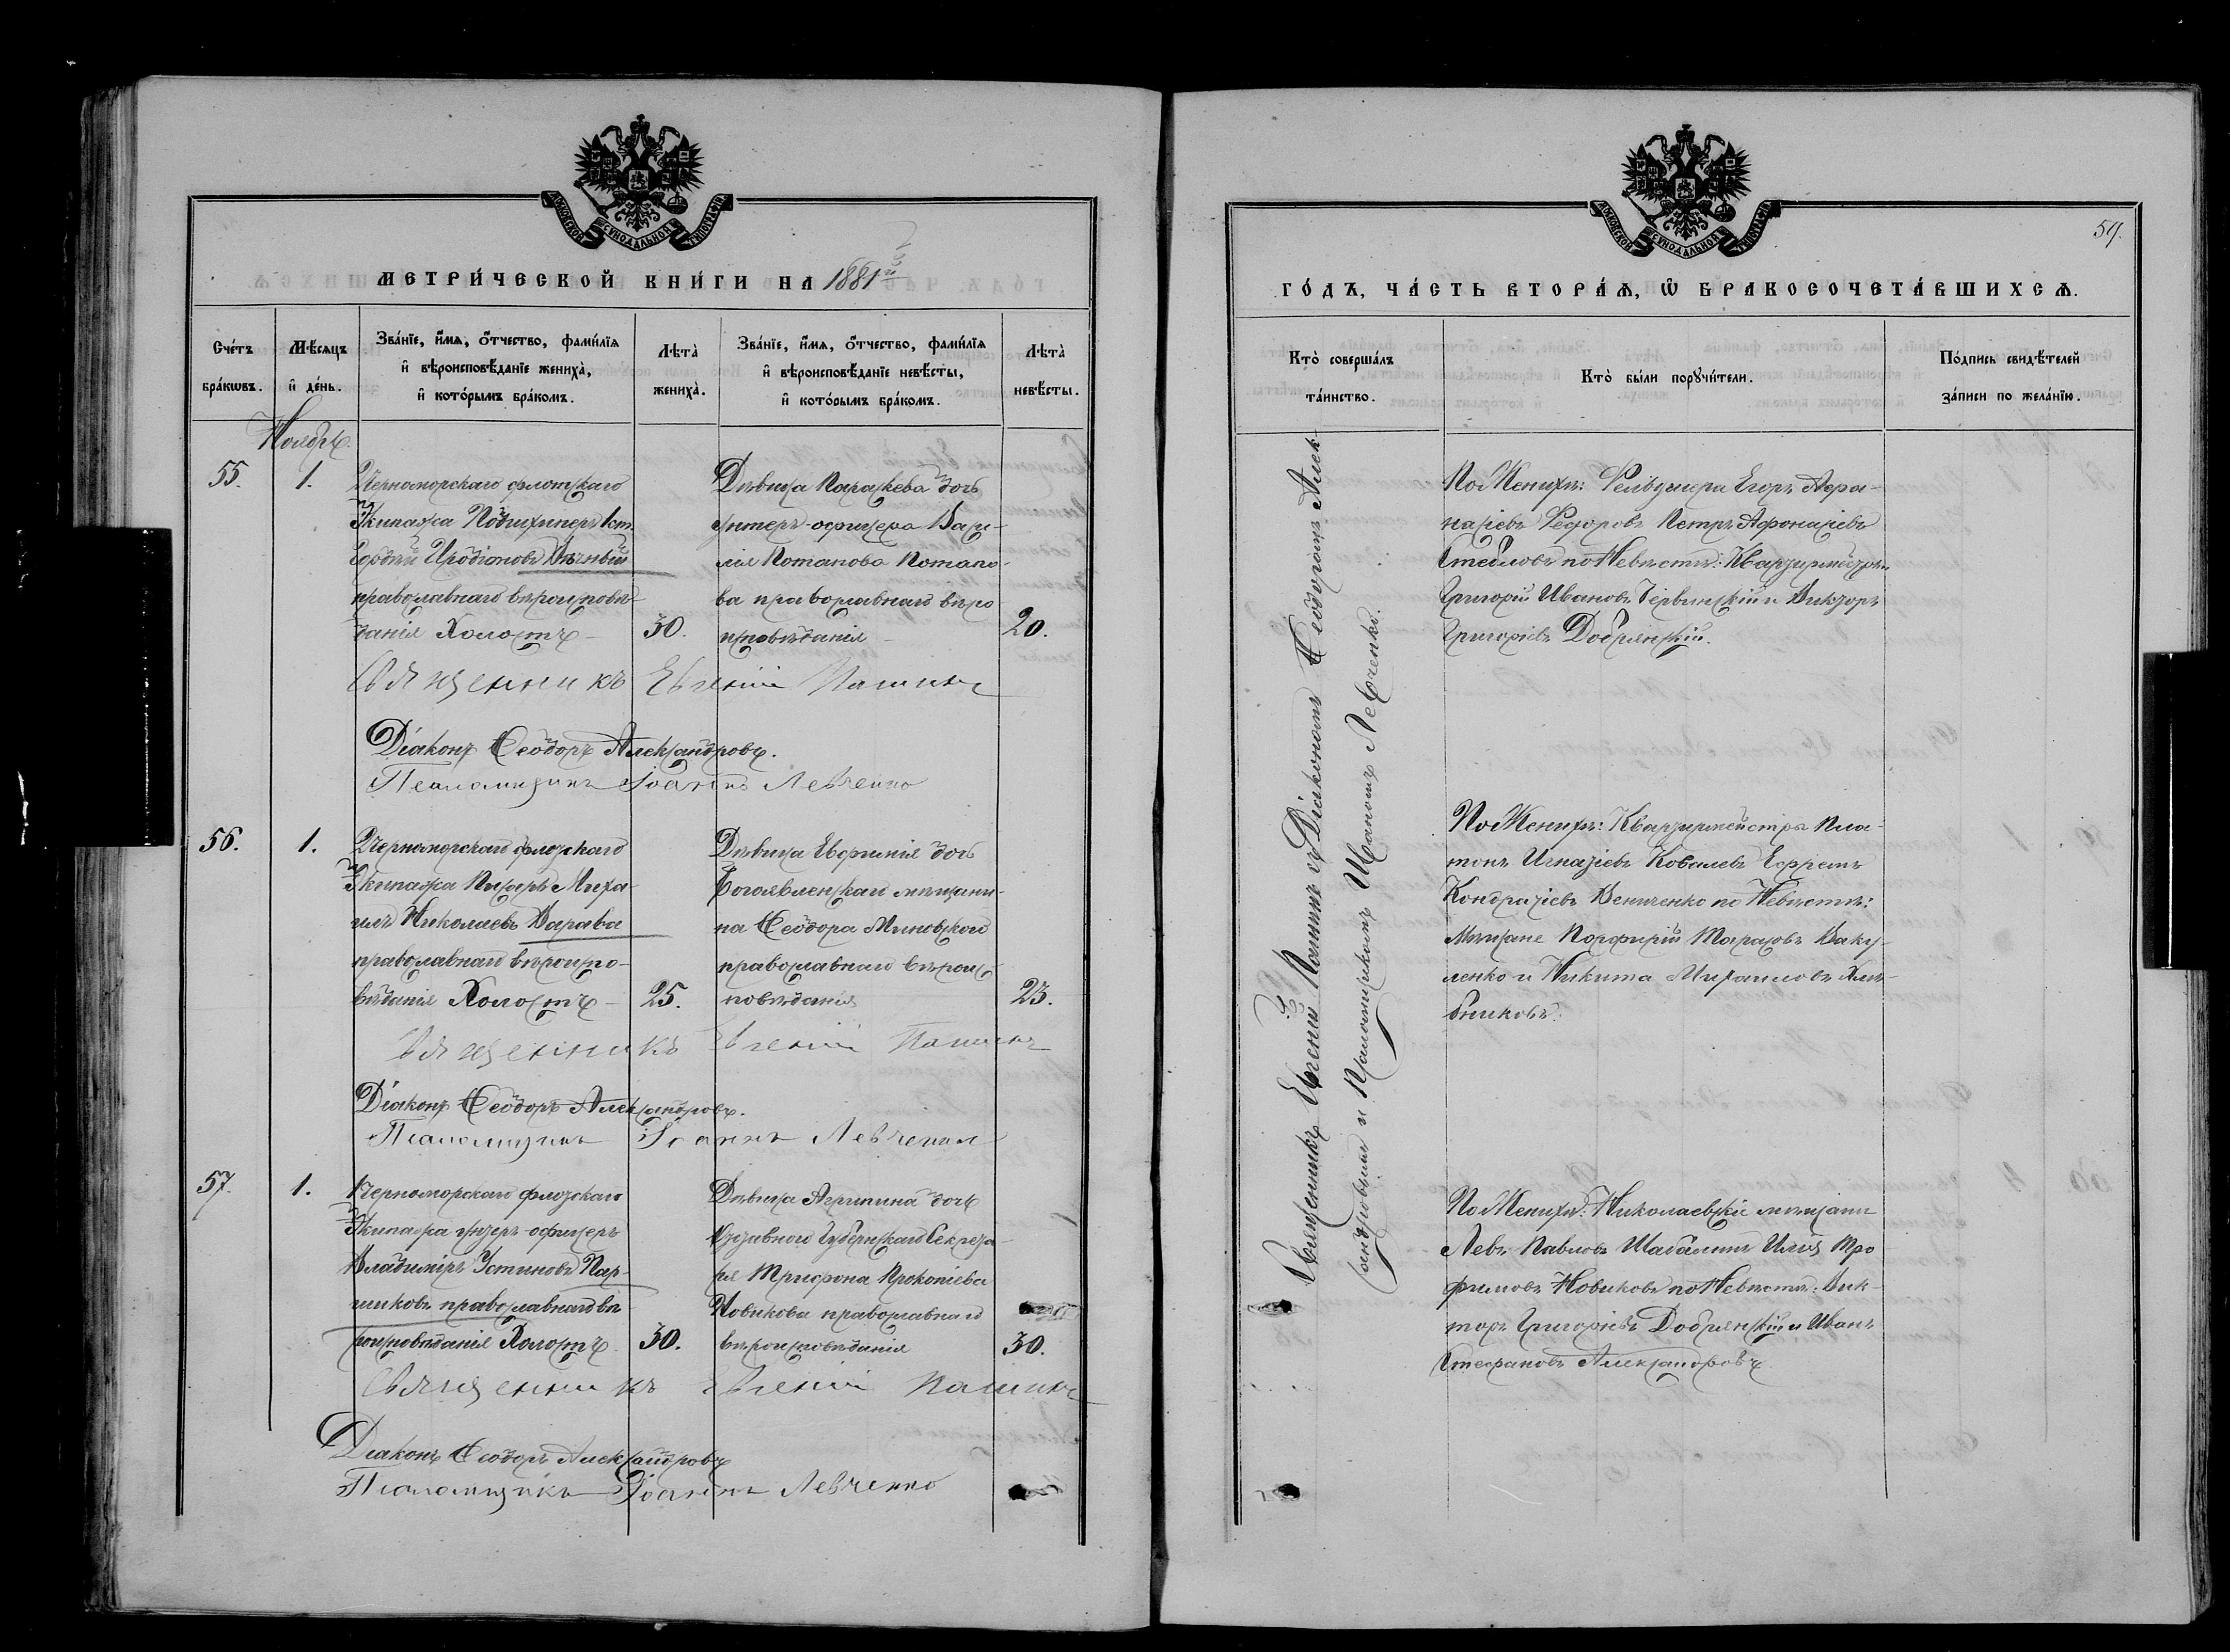 МОСКОВСКОЙ СѴНОДАЛЬНОЙ ТИПОГРАФІИ
МЕТРИ́ЧЕСКОЙ КНИ́ГИ НА 1881й
Сче́тъ бра́кωвъ.
Мѣ́сяцъ и҆ де́нь.
Зва́нїе, и҆́мѧ, ѻ҆́тчество, фами́лїѧ
и҆ вѣроисповѣ́данїе жениха̀,
и҆ кото́рымъ бра́комъ.
Лѣта̀ жениха̀.
Зва́нїе, и҆́мѧ, ѻ҆́тчество, фами́лїѧ
и҆ вѣроисповѣ́данїе невѣ́сты,
и҆ кото́рымъ бра́комъ.
Лѣта̀ невѣ́сты.
Ноябрь.
55.
1.
Черноморскаго флотскаго
Экипажа Подшхиперъ 1 ст.
Гордѣй Иродіоновъ Вѣчный
православнаго вѣроисповѣ-
данія Холостъ
30.
Дѣвица Параскева дочь
унтеръ-офицера Васи-
лія Потапова Потапо-
ва православнаго вѣро
исповѣданія
20.
Священникъ Евгеній Пашинъ
Діаконъ Ѳеодоръ Александровъ.
Псаломщикъ Іоаннъ Левченко
56.
1.
Черноморскаго флотскаго
Экипажа Писарь Миха-
илъ Николаевъ Варава
православнаго вѣроиспо-
вѣданія Холостъ
25.
Дѣвица Евфимія дочь
Богоявленскаго мѣщани-
на Ѳеодора Миновскаго
православнаго вѣроис-
повѣданія
23.
Священникъ Евгеній Пашинъ
Діаконъ Ѳеодоръ Александровъ.
Псаломщикъ Іоаннъ Левченко
57.
1.
Черноморскаго флотскаго
Экипажа унтеръ-офицеръ
Владиміръ Устиновъ Пар-
шиковъ православнаго вѣ-
роисповѣданія Холостъ
30.
Дѣвица Агрипина дочь
отставного Губернскаго Секрета-
ря Трифона Прокопіева
Новикова православнаго
вѣроисповѣданія
30.
Священникъ Евгеній Пашинъ
Діаконъ Ѳеодоръ Александровъ
Псаломщикъ Іоаннъ Левченко
МОСКОВСКОЙ СѴНОДАЛЬНОЙ ТИПОГРАФІИ
59.
ГО́ДЪ, ЧА́СТЬ ВТОРА́Ѧ, Ѽ БРАКОСОЧЕТА́ВШИХСѦ.
Кто̀ соверша́лъ
та́инство.
Кто̀ бы́ли порꙋчи́тели.
По́дпись свидѣ́телей
за́писи по жела́нїю.
Священникъ Евгеній Пашинъ съ Діакономъ Ѳеодоромъ Алек-
сандровымъ и Псаломщикомъ Иваномъ Левченко.
По Женихѣ: Фельдшера Егоръ Афа-
насіевъ Федоровъ Петръ Афонасіевъ
по Невѣстѣ: Квартирмейстръ
Григорій Ивановъ и Викторъ
Григоріевъ Добрянскій.
По Женихѣ: Квартирмейстры Пла-
тонъ Игнатіевъ Ковалевъ Ефремъ
Кондратіевъ Величенко по Невѣстѣ:
Мѣщане Порфирій Тарасовъ Ваку-
ленко и Никита Михаиловъ Хлѣ-
бниковъ.
По Женихѣ: Николаевскіе мѣщани
Левъ Павловъ Шабалинъ Илія Тро
фимовъ Новиковъ по Невѣстѣ: Вик-
торъ Григоріевъ Добрянскій и Иванъ
Стефановъ Александровъ